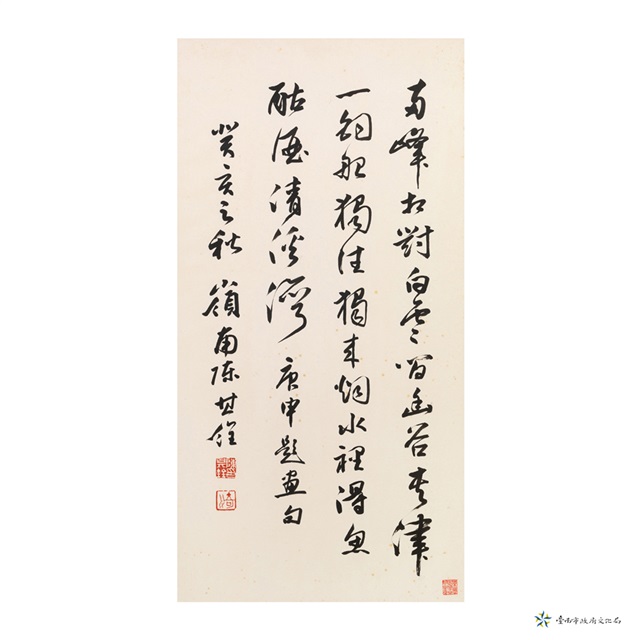 兩峰相對白雲間幽谷津
一釣船獨往獨來烟水裡得魚
酤酒清溪灣 庚申題畫句
癸亥之秋 嶺南陳其銓
臺南市政府文化局